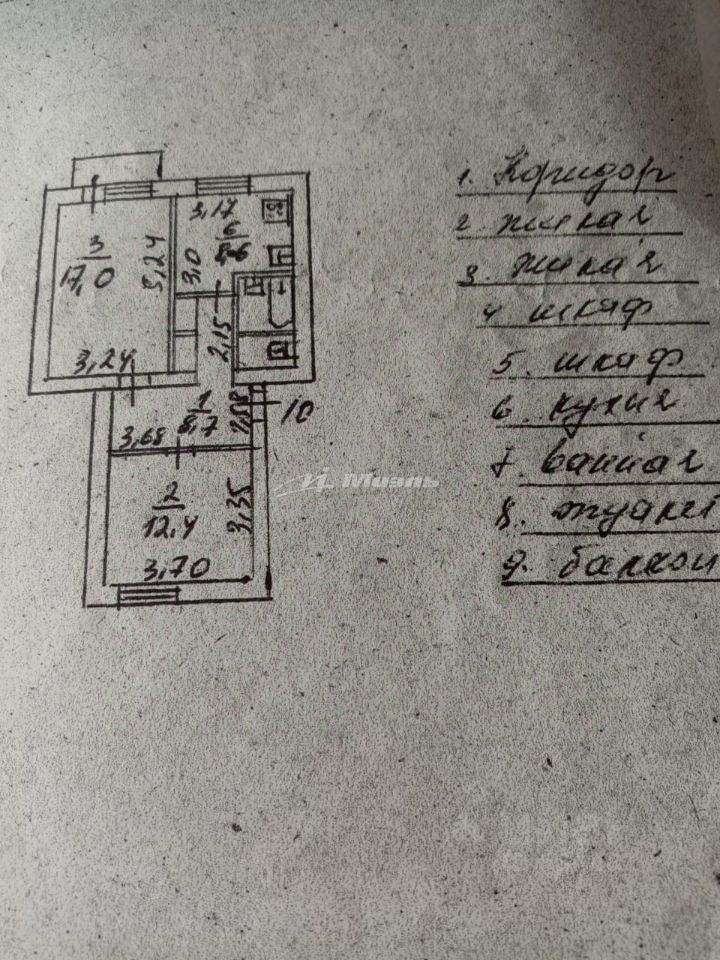 3
17,0
5,24
3,24
3,17
6
8,6
3,0
2,15
1
8,7
3,68
2,08
10
2
12,4
3,35
3,70
И. Миэль
1. Коридор
2. жилая
3. жилая
4 шкаф
5. шкаф
6. кухня
7. ванная
8. туалет
9. балкон